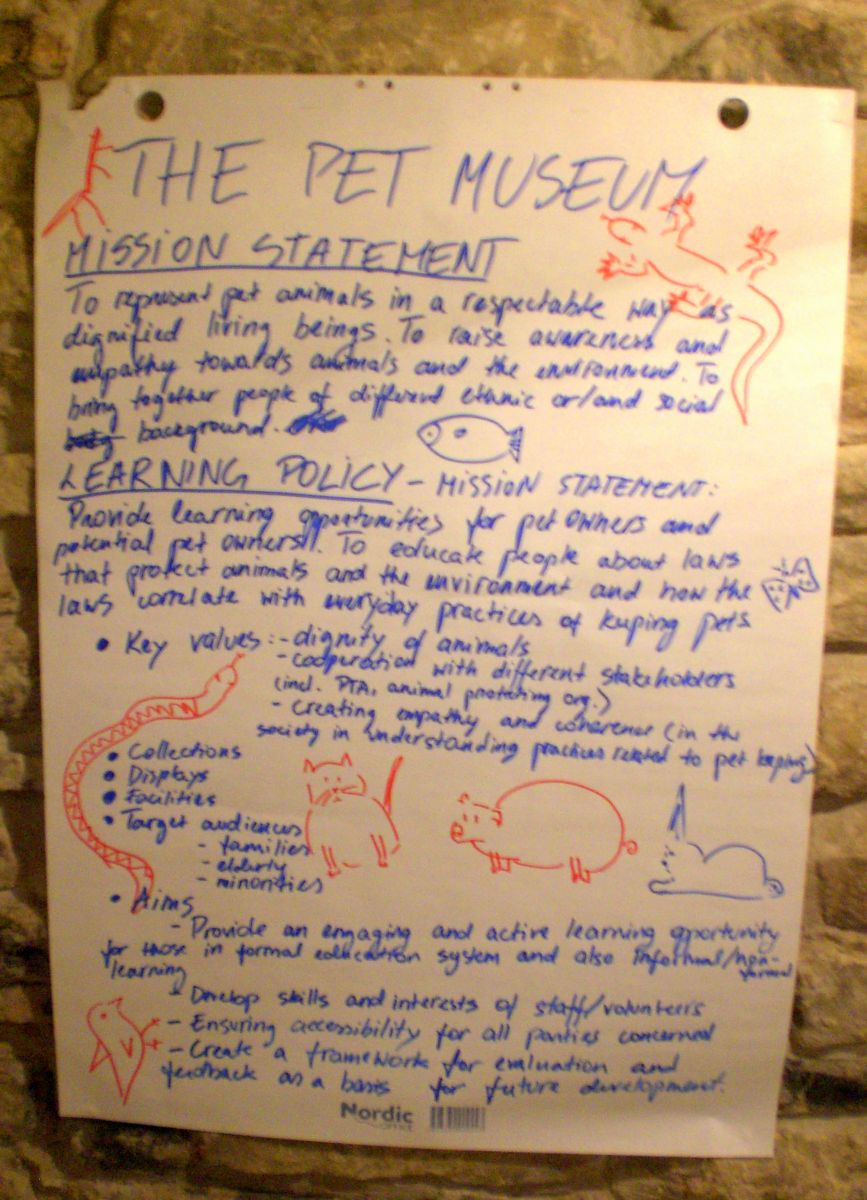 THE PET MUSEUM
MISSION STATEMENT
To represent pet animals in a respectable way as
dignified living beings. To raise awareness and
empathy towards animals and the environment. To
bring together people of different ethnic or/and social
background.
LEARNING POLICY - MISSION STATEMENT:
Provide learning opportunities for pet owners and
potential pet owners!!. To educate people about laws
that protect animals and the environment and how the
laws correlate with everyday practices of keeping pets
• Key values: - dignity of animals
- cooperation with different stakeholders
(incl. PTA, animal protecting org.)
- creating empathy and coherence (in the
society in understanding practices related to pet keeping)
• Collections
• Displays
• Facilities
• Target audiences
- families
- elderly
- minorities
• Aims
- Provide an engaging and active learning opportunity
for those in formal education system and also informal/non-formal
learning
- Develop skills and interests of staff/volunteers
- Ensuring accessibility for all parties concerned
- Create a framework for evaluation and
feedback as a basis for future development.
Nordic